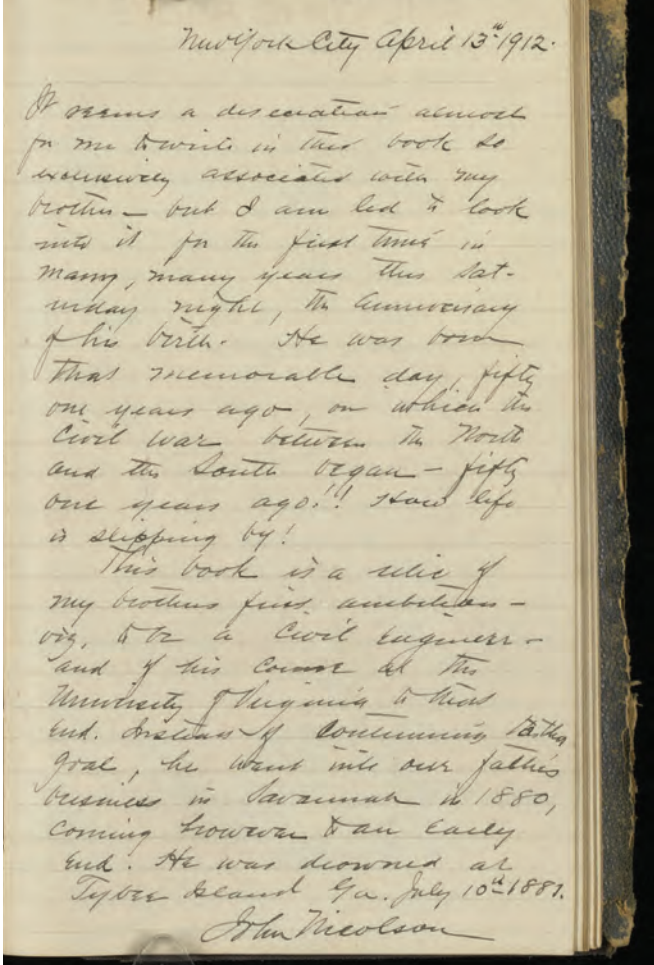 New York City April 13th 1912.
It seems a desecration almost
for me to write in this book so
exclusively associated with my
brother – but I am led to look
into it for the first time in
many, many years this Sat-
urday night, the anniversary
of his birth. He was born
that memorable day, fifty
one years ago, on which the
Civil War between the North
and the South began – fifty
one years ago!! How life
is slipping by!
This book is a relic of
my brothers first ambition –
viz, to be a Civil Engineer –
and of his course at the
University of Virginia to that
end. Instead of continuing to that
goal, he went into our father's
business in Savannah in 1880,
coming however to an early
end. He was drowned at
Tybee Island Ga. July 10th 1881.
John Nicolson